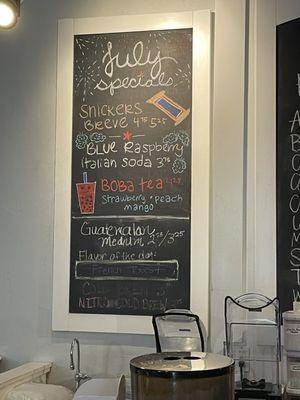 July
specials
Snickers
Breve 4.75 5.25
Blue Raspberry
Italian Soda 3.75
Boba tea 4.25
Strawberry • Peach
mango
Guatemalan
Medium 2.75/3.25
Flavor of the day:
French Toast
Nitro Cold Brew